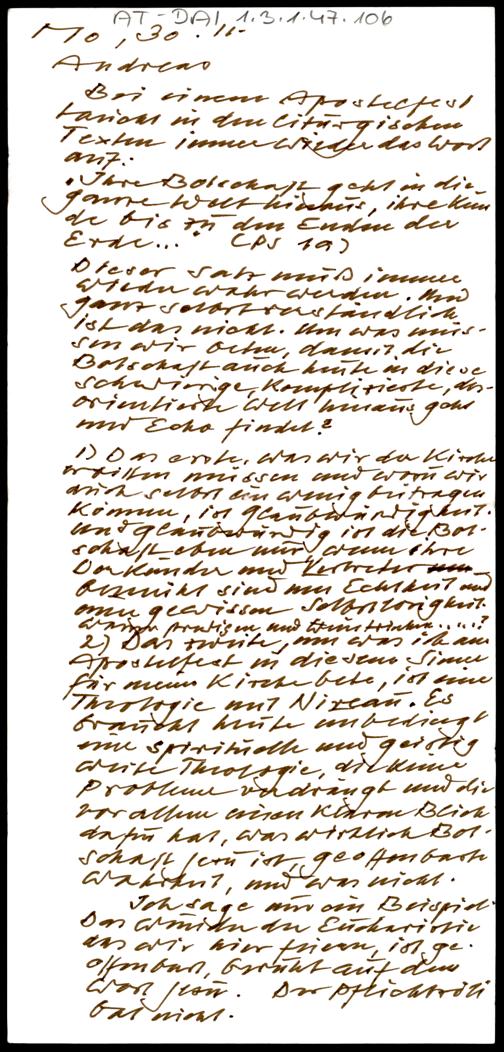 AT-DAI, 1.3.1.47.106
Mo, 30. 11.
Andreas
Bei einem Apostelfest
taucht in den liturgischen
Texten immer wieder das Wort
auf:
"Ihre Botschaft geht in die
ganze Welt hinaus, ihre Kun
de bis zu den Enden der
Erde..." (Ps 19)
Dieser Satz muß immer
wieder wahr werden. Und
ganz selbstverständlich
ist das nicht. Um was müs-
sen wir beten, damit die
Botschaft auch heute in diese
schwierige, komplizierte, des-
orientierte Welt hinaus geht
und Echo findet?
1) Das erste, was wir der Kirche
erbitten müssen und wozu wir
auch selbst ein wenig beitragen
können, ist Glaubwürdigkeit.
Und glaubwürdig ist die Bot-
schaft eben nur wenn ihre
Verkünder und Vertreter
bemüht sind um Echtheit und
eine gewisse Selbstlosigkeit.
Wasser predigen und Wein trinken.....?
2) Das zweite, um was ich am
Apostelfest in diesem Sinne
für meine Kirche bete, ist eine
Theologie mit Niveau. Es
braucht heute unbedingt
eine spirituelle und geistig
weite Theologie, die keine
Probleme verdrängt und die
vor allem einen klaren Blick
dafür hat, was wirklich Bot-
schaft Jesu ist, geoffenbarte
Wahrheit, und was nicht.
Ich sage nur ein Beispiel:
Das Wunder der Eucharistie
das wir hier feiern, ist ge-
offenbart, beruht auf dem
Wort Jesu. Der Pflichtzöli
bat nicht.